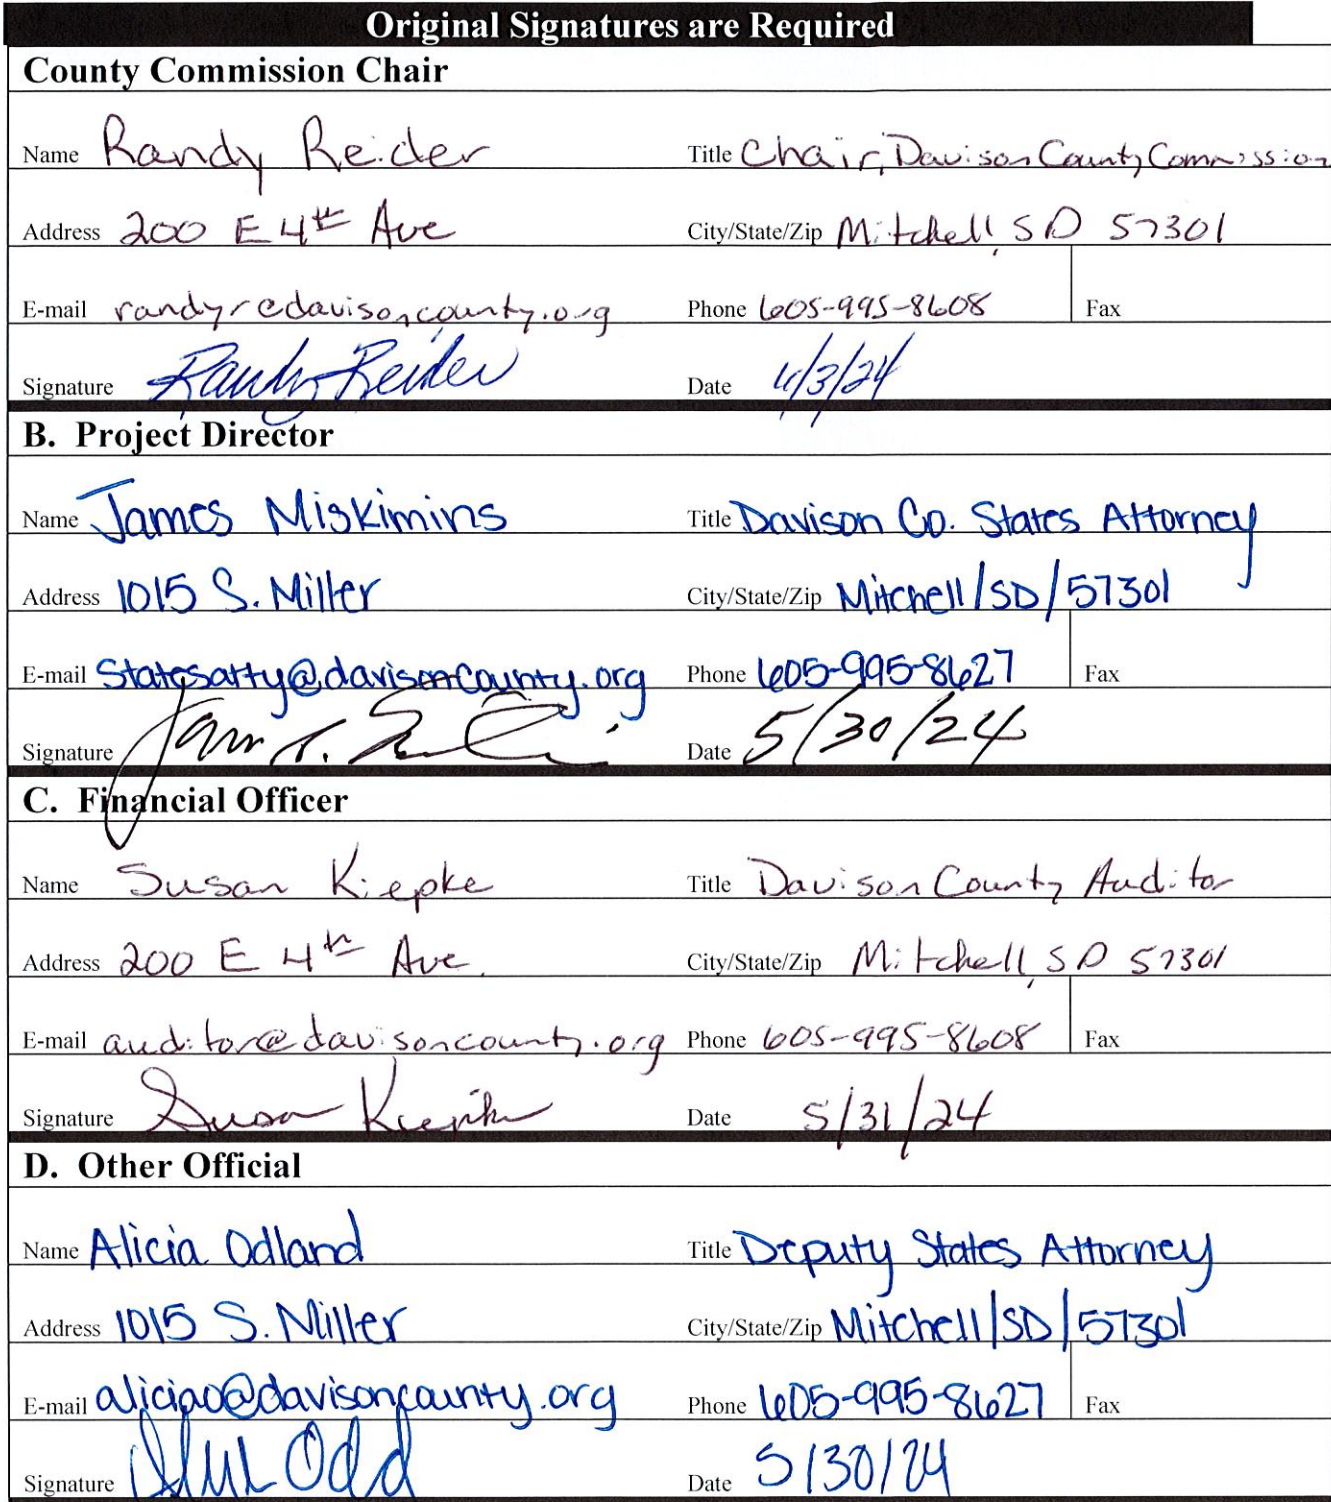 Original Signatures are Required
County Commission Chair
Name Randy Reider Title Chair, Davison County Commission
Address 200 E 4th Ave City/State/Zip Mitchell, SD 57301
E-mail randyr@davisoncounty.org Phone 605-995-8608 Fax
Signature Randy Reider Date 6/3/24
B. Project Director
Name James Miskimins Title Davison Co. States Attorney
Address 1015 S. Miller City/State/Zip Mitchell/SD/57301
E-mail Statesatty@davisoncounty.org Phone 605-995-8627 Fax
Signature Date 5/30/24
C. Financial Officer
Name Susan Kiepke Title Davison County Auditor
Address 200 E 4th Ave. City/State/Zip Mitchell, SD 57301
E-mail auditor@davisoncounty.org Phone 605-995-8608 Fax
Signature Susan Kiepke Date 5/31/24
D. Other Official
Name Alicia Odland Title Deputy States Attorney
Address 1015 S. Miller City/State/Zip Mitchell/SD/57301
E-mail aliciao@davisoncounty.org Phone 605-995-8627 Fax
Signature Date 5/30/24